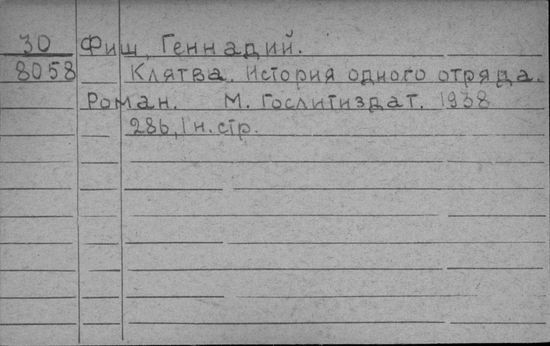 30 Фиш, Геннадий.
8058 Клятва. История одного отряда.
Роман. М. Гослитиздат. 1938
286, 1 н. стр.